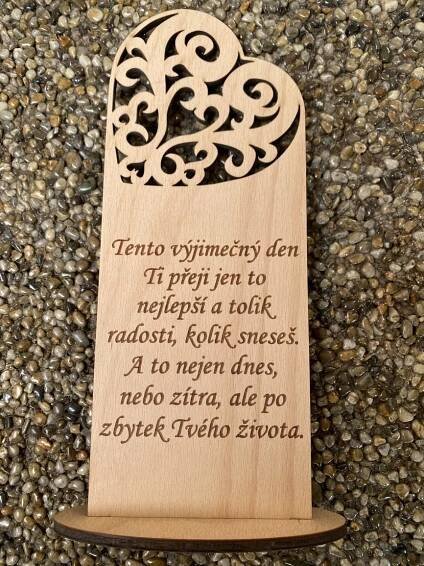 Tento výjimečný den
Ti přeji jen to
nejlepší a tolik
radosti, kolik sneseš.
A to nejen dnes,
nebo zítra, ale po
zbytek Tvého života.